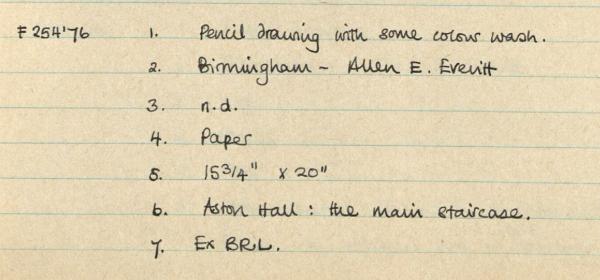 F254'76 1. Pencil drawing with some colour wash.
2. Birmingham - Allen E. Everitt
3. n.d.
4. Paper
5. 15 3/4" x 20"
6. Aston Hall : the main staircase.
7. Ex BRL.